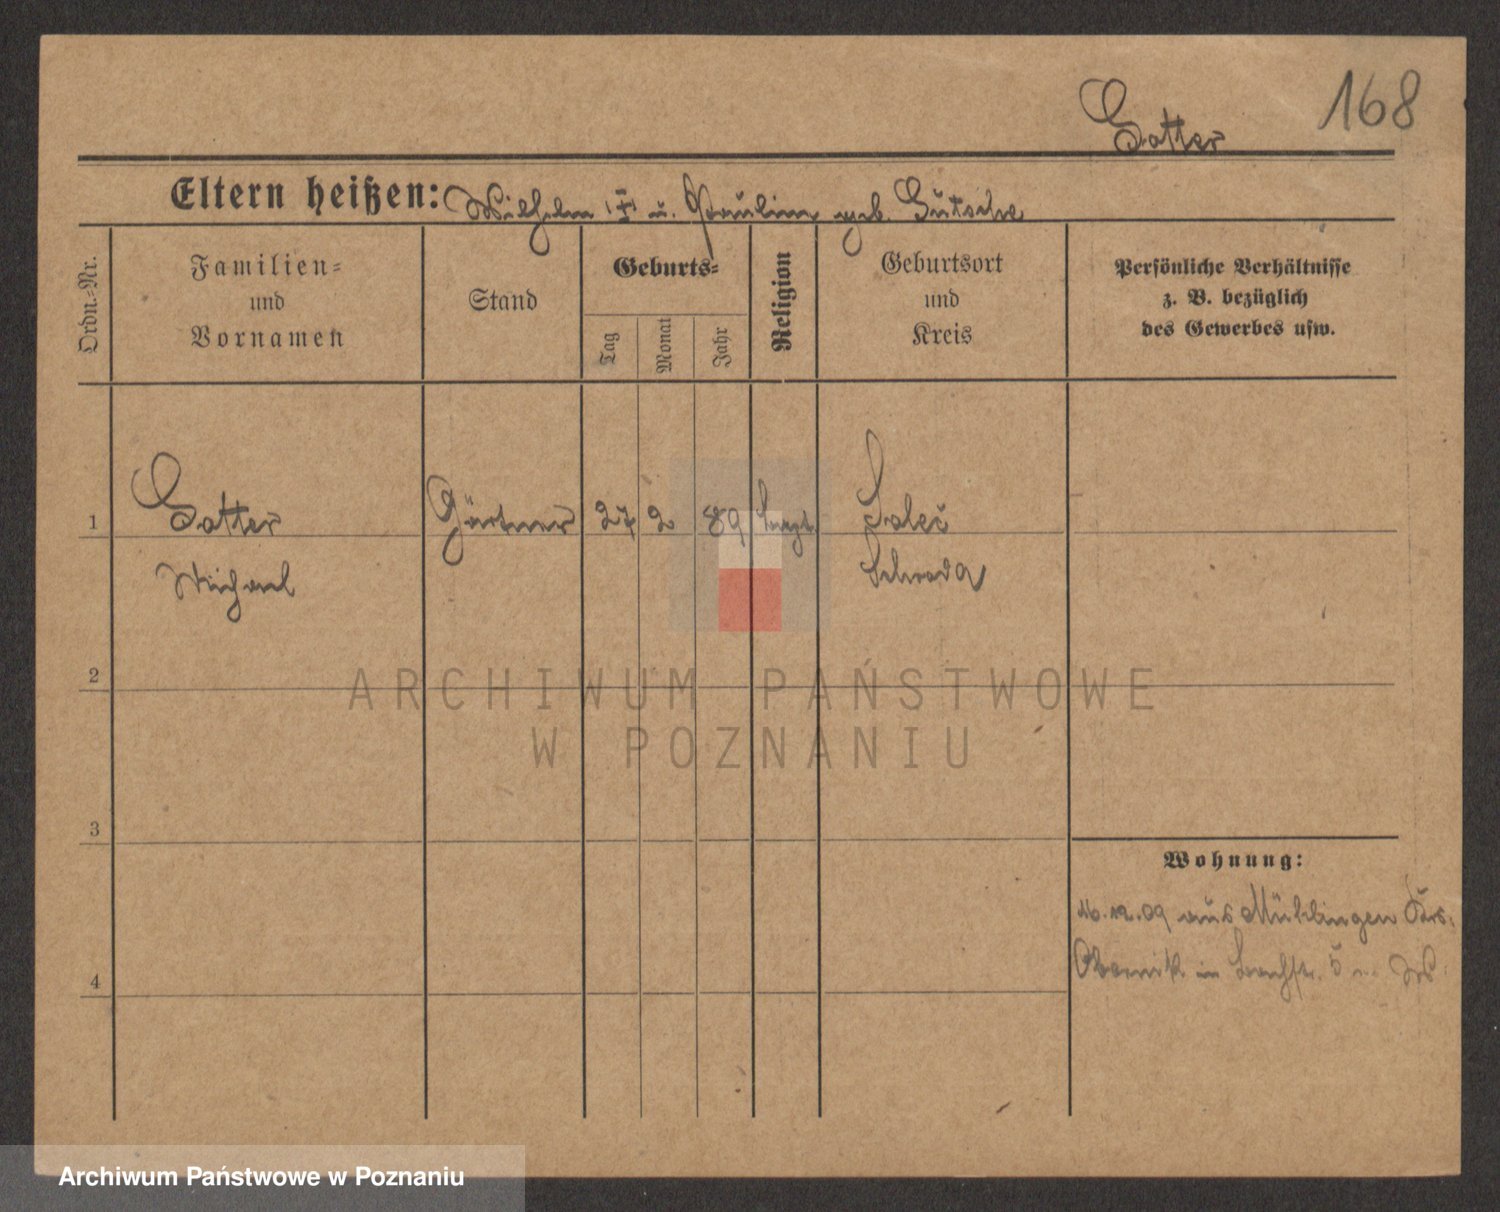 168
Gatter
Eltern heißen: Wilhelm u. Paulin geb. Gutsche
Ordn.-Nr.
Familien-
und
Vornamen
Stand
Geburts-
Tag
Monat
Jahr
Religion
Geburtsort
und
Kreis
Persönliche Verhältnisse
z. B. bezüglich
des Gewerbes usw.
1
Gatter
Gärtner
27
2
89
Michael
Schroda
2
ARCHIWUM PAŃSTWOWE
W POZNANIU
3
Wohnung:
12.09 aus Mühlingen Krs.
Obornik in 5
4
Archiwum Państwowe w Poznaniu